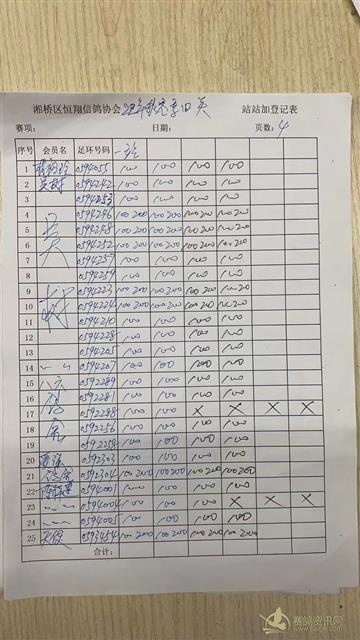 湘桥区恒翔信鸽协会 站站加登记表
赛项: 日期: 页数: 4
序号 会员名 足环号码 一站
1 0594055 100 100 100 100
2 0594242 100 100 100 100
3 0594253 100 100 100 100
4 0594246 100 200 100 200 100 200 100 200
5 0594248 100 200 100 200 100 200 100 200
6 0594252 100 200 100 200 100 200 100 200
7 0594257 100 100 100 100
8 0594259 100 100 100 100
9 0594223 100 200 100 200 100 200 100 200
10 0594224 100 200 100 200 100 200 100 200
11 0594210 100 100 100 100
12 0594228 100 100 100 100
13 0594205 100 100 100 100
14 0594207 100 100 100 100
15 0592289 100 100 100 100
16 0592281 100 100 100 100
17 0592298 100 100 X X X X
18 0592256 100 100 100 100
19 0592258 100 100 100 100
20 0592303 100 100 100 100
21 0592304 100 200 100 200 100 200 100 200
22 0594001 100 100 100 100
23 0594004 100 100 100 X X X
24 0594005 100 100 100 100
25 0593454 100 200 100 200 100 200 100 200
合计:
赛鸽资讯网